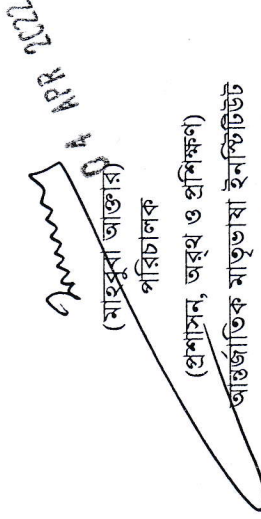 04 APR 2022
(মাহবুবা আক্তার)
পরিচালক
(প্রশাসন, অর্থ ও প্রশিক্ষণ)
আন্তর্জাতিক মাতৃভাষা ইনস্টিটিউট